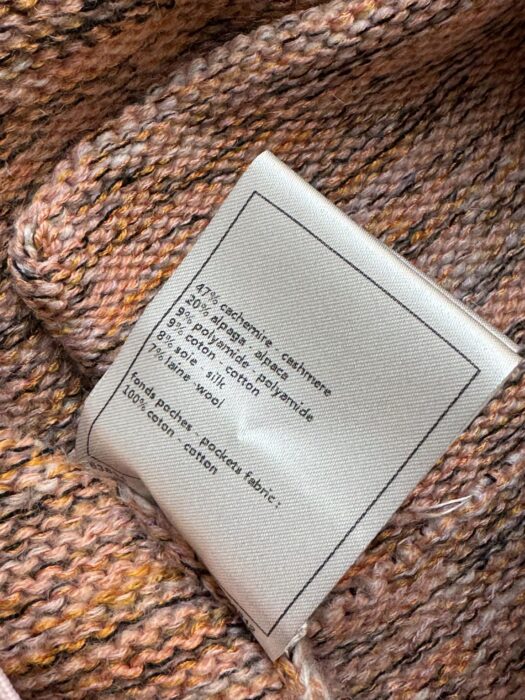 47% cachemire - cashmere
20% alpaga - alpaca
9% polyamide - polyamide
9% coton - cotton
8% soie - silk
7% laine - wool
fonds poches - pockets fabric :
100% coton - cotton